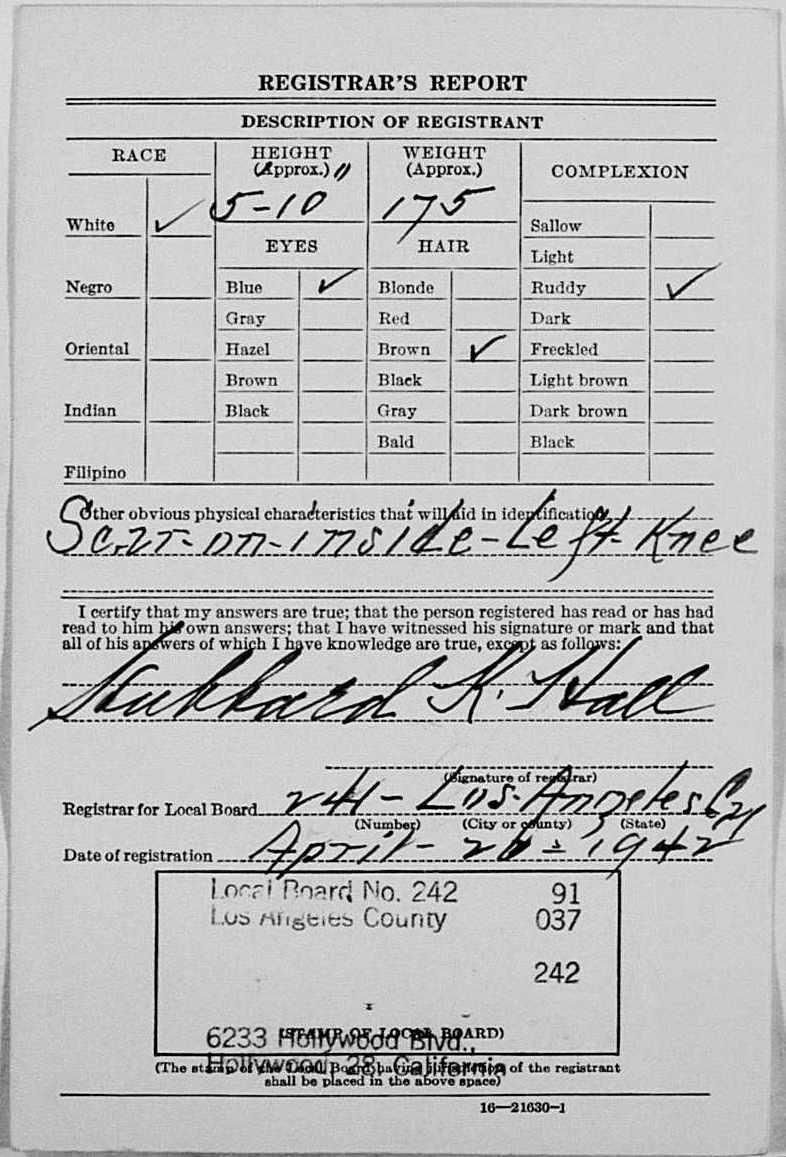 REGISTRAR'S REPORT
DESCRIPTION OF REGISTRANT
RACE
HEIGHT
(Approx.)
WEIGHT
(Approx.)
COMPLEXION
5-10
175
White ✓
Sallow
EYES
HAIR
Light
Negro
Blue ✓
Blonde
Ruddy ✓
Gray
Red
Dark
Oriental
Hazel
Brown ✓
Freckled
Brown
Black
Light brown
Indian
Black
Gray
Dark brown
Bald
Black
Filipino
Other obvious physical characteristics that will aid in identification
Scar-on-inside-Left-Knee
I certify that my answers are true; that the person registered has read or has had
read to him his own answers; that I have witnessed his signature or mark and that
all of his answers of which I have knowledge are true, except as follows:
Hubbard K. Hall
(Signature of registrar)
Registrar for Local Board 241- Los-Angeles
(Number) (City or county) (State)
Date of registration April- 26- 1942
Local Board No. 242 91
Los Angeles County 037
242
(STAMP OF LOCAL BOARD)
6233 Hollywood Blvd.,
Hollywood, 28, California
(The stamp of the Local Board having jurisdiction of the registrant
shall be placed in the above space)
16—21630-1